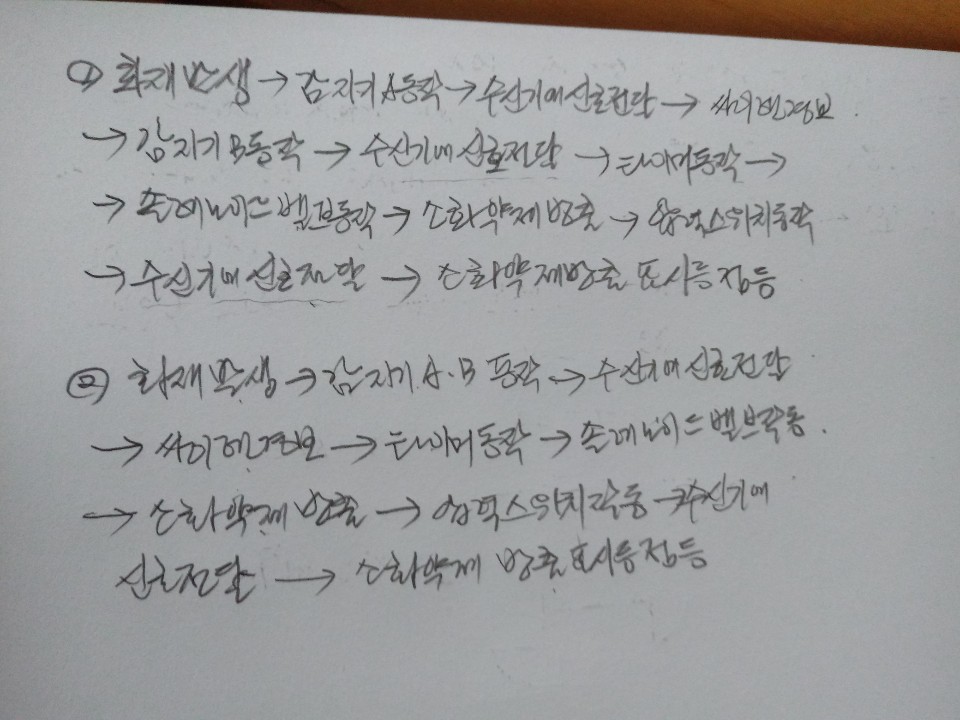 ① 화재발생 → 감지기 A동작 → 수신기에 신호전달 → 싸이렌경보
→ 감지기 B동작 → 수신기에 신호전달 → 타이머동작 →
→ 솔레노이드 벨브동작 → 소화약제 방출 → 압력스위치동작
→ 수신기에 신호전달 → 소화약제방출 표시등 점등
② 화재발생 → 감지기 A·B 동작 → 수신기에 신호전달
→ 싸이렌경보 → 타이머동작 → 솔레노이드 벨브작동.
→ 소화약제 방출 → 압력스위치작동 → 수신기에
신호전달 → 소화약제 방출표시등점등